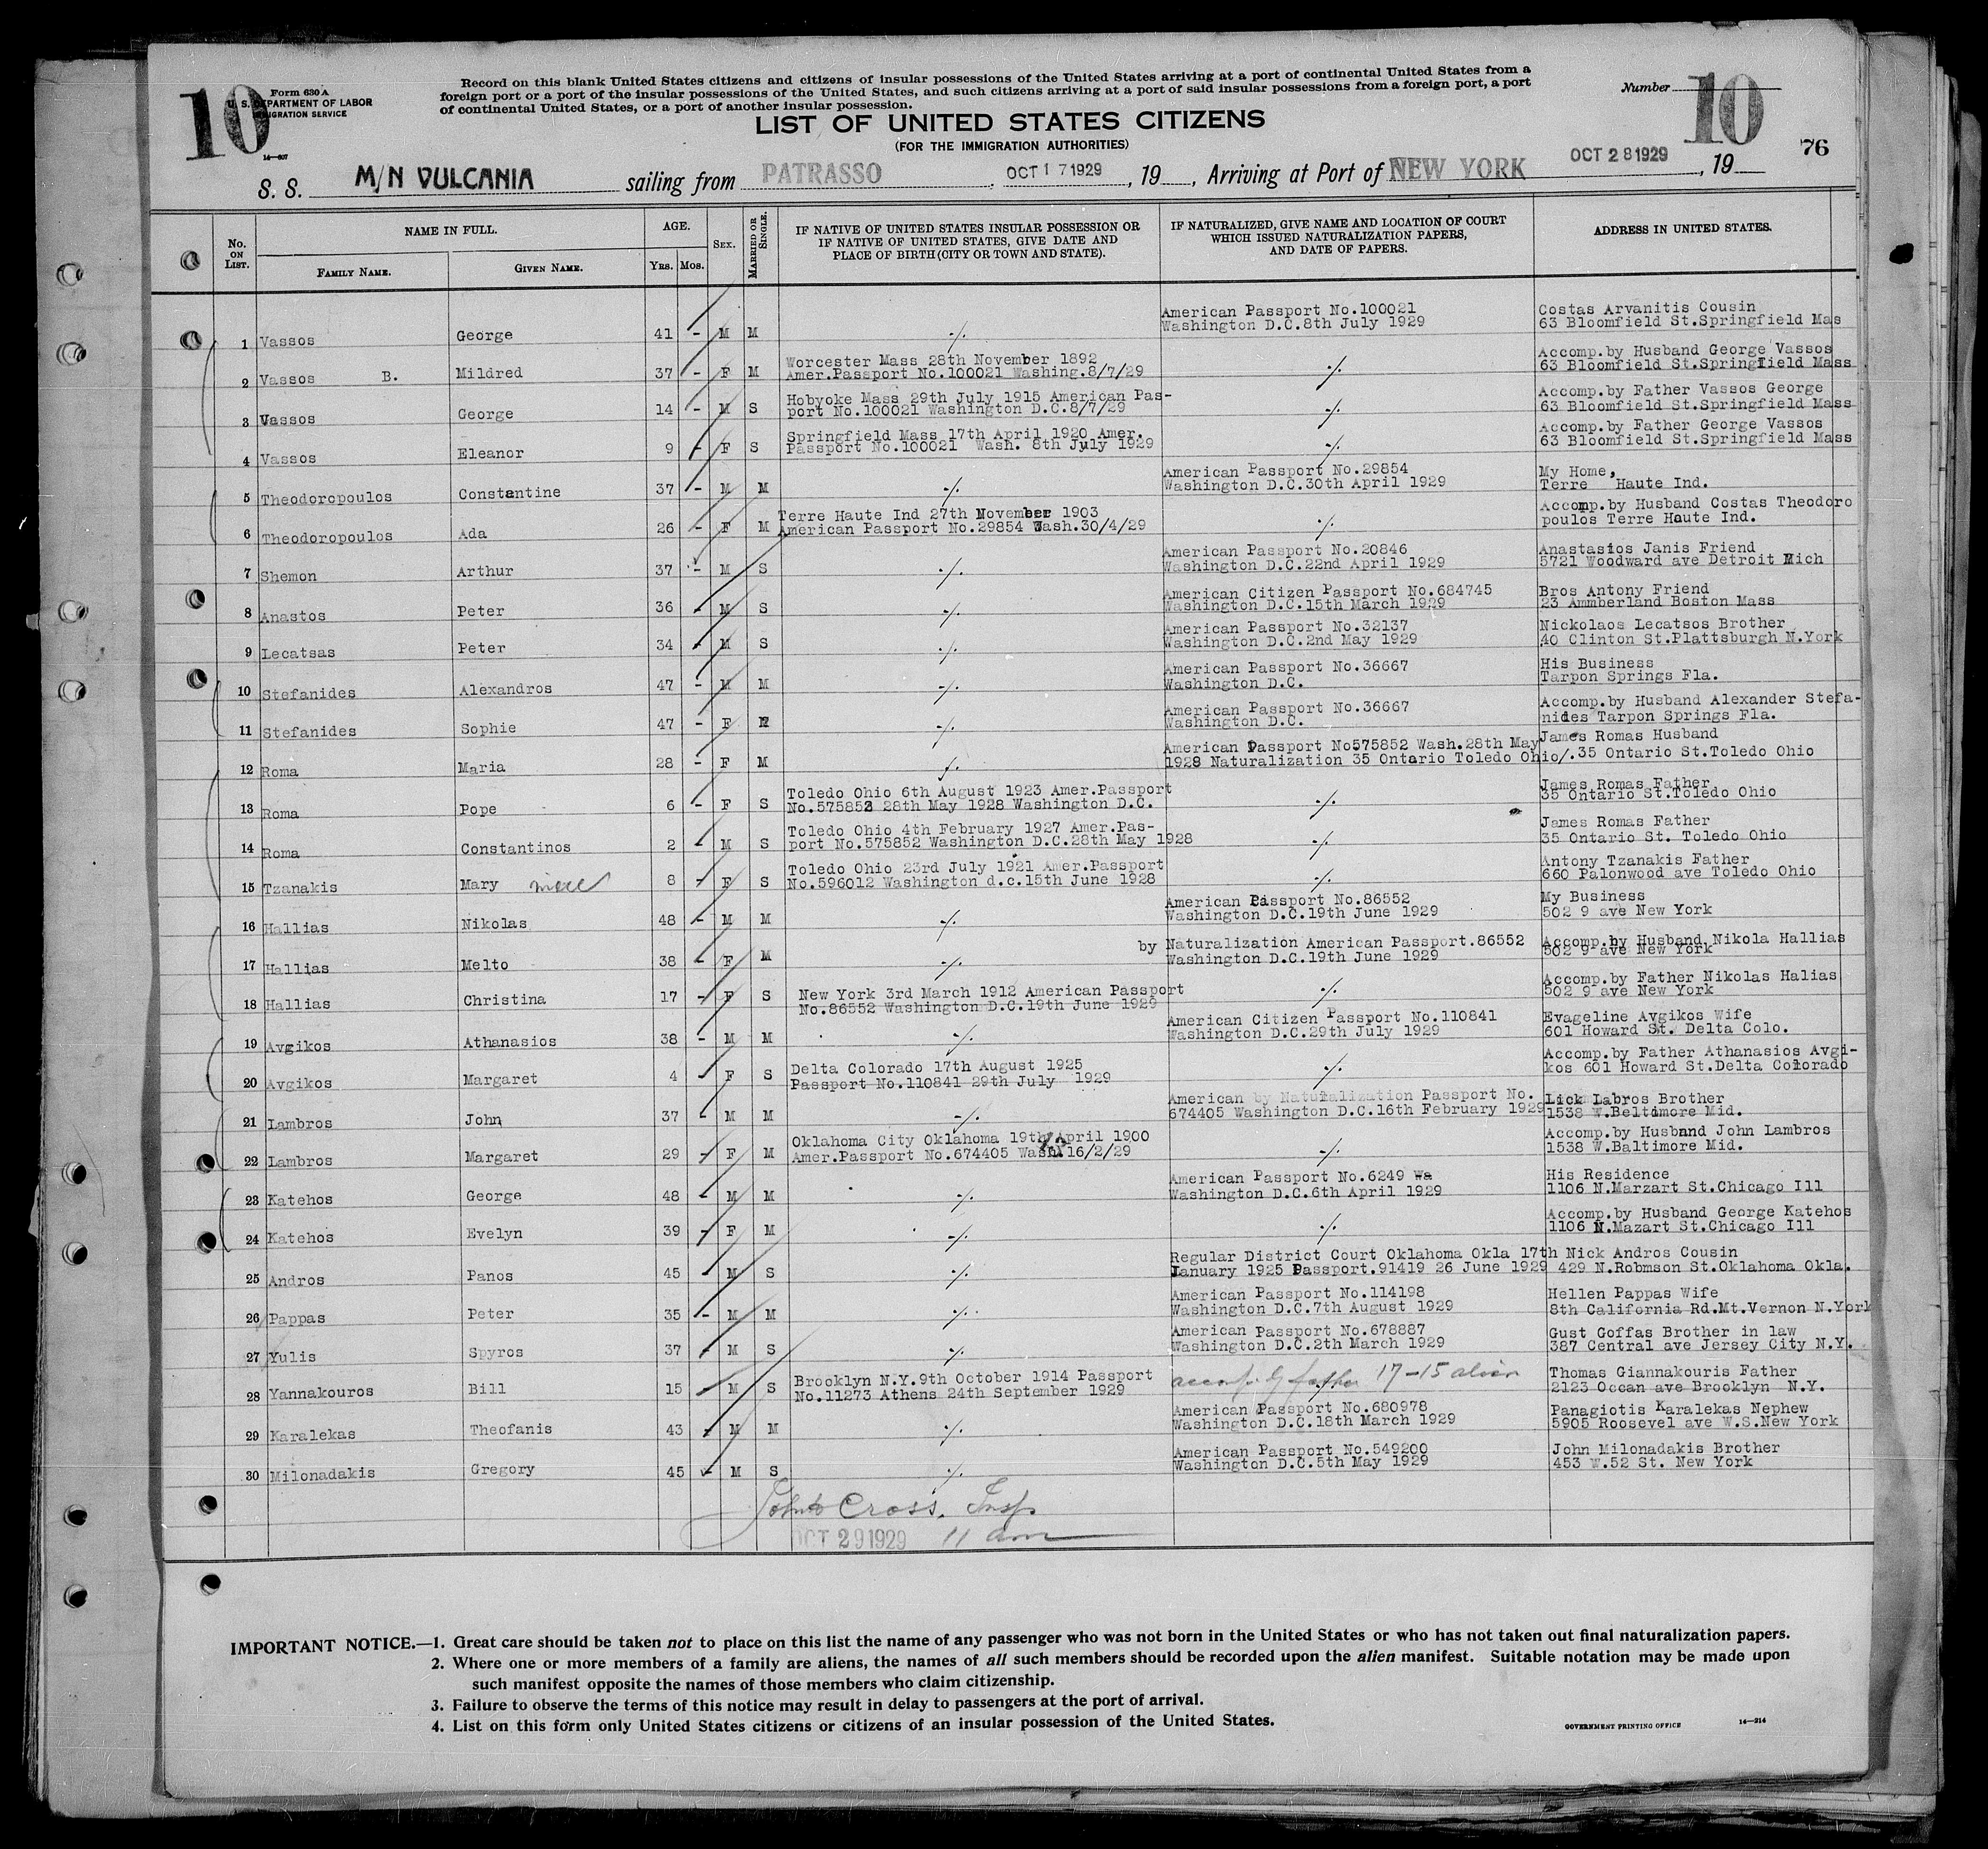 10
Form 630 A
U. S. DEPARTMENT OF LABOR
IMMIGRATION SERVICE
14—607
Record on this blank United States citizens and citizens of insular possessions of the United States arriving at a port of continental United States from a
foreign port or a port of the insular possessions of the United States, and such citizens arriving at a port of said insular possessions from a foreign port, a port
of continental United States, or a port of another insular possession.
Number 10
76
LIST OF UNITED STATES CITIZENS
(FOR THE IMMIGRATION AUTHORITIES)
S. S. M/N VULCANIA sailing from PATRASSO, OCT 17 1929, 19 , Arriving at Port of NEW YORK OCT 28 1929, 19
No. ON LIST. NAME IN FULL. FAMILY NAME. GIVEN NAME. AGE. YRS. MOS. SEX. MARRIED OR SINGLE. IF NATIVE OF UNITED STATES INSULAR POSSESSION OR IF NATIVE OF UNITED STATES, GIVE DATE AND PLACE OF BIRTH (CITY OR TOWN AND STATE). IF NATURALIZED, GIVE NAME AND LOCATION OF COURT WHICH ISSUED NATURALIZATION PAPERS, AND DATE OF PAPERS. ADDRESS IN UNITED STATES.
1 Vassos George 41 - M M -/. American Passport No.100021 Washington D.C.8th July 1929 Costas Arvanitis Cousin 63 Bloomfield St.Springfield Mas
2 Vassos B. Mildred 37 - F M Worcester Mass 28th November 1892 Amer.Passport No.100021 Washing.8/7/29 -/. Accomp.by Husband George Vassos 63 Bloomfield St.Springfield Mass
3 Vassos George 14 - M S Hobyoke Mass 29th July 1915 American Pas- port No.100021 Washington D.C.8/7/29 -/. Accomp.by Father Vassos George 63 Bloomfield St.Springfield Mass
4 Vassos Eleanor 9 - F S Springfield Mass 17th April 1920 Amer. Passport No.100021 Wash. 8th July 1929 -/. Accomp.by Father George Vassos 63 Bloomfield St.Springfield Mass
5 Theodoropoulos Constantine 37 - M M -/. American Passport No.29854 Washington D.C.30th April 1929 My Home, Terre Haute Ind.
6 Theodoropoulos Ada 26 - F M Terre Haute Ind 27th November 1903 American Passport No.29854 Wash.30/4/29 -/. Accomp.by Husband Costas Theodoro poulos Terre Haute Ind.
7 Shemon Arthur 37 - M S -/. American Passport No.20846 Washington D.C.22nd April 1929 Anastasios Janis Friend 5721 Woodward ave Detroit Mich
8 Anastos Peter 36 - M S -/. American Citizen Passport No.684745 Washington D.C.15th March 1929 Bros Antony Friend 23 Ammberland Boston Mass
9 Lecatsas Peter 34 - M S -/. American Passport No.32137 Washington D.C.2nd May 1929 Nickolaos Lecatsos Brother 40 Clinton St.Plattsburgh N.York
10 Stefanides Alexandros 47 - M M -/. American Passport No.36667 Washington D.C. His Business Tarpon Springs Fla.
11 Stefanides Sophie 47 - F M -/. American Passport No.36667 Washington D.C. Accomp.by Husband Alexander Stefa- nides Tarpon Springs Fla.
12 Roma Maria 28 - F M -/. American Passport No575852 Wash.28th May 1928 Naturalization 35 Ontario Toledo Ohio/. James Romas Husband 35 Ontario St.Toledo Ohio
13 Roma Pope 6 - F S Toledo Ohio 6th August 1923 Amer.Passport No.575852 28th May 1928 Washington D.C. -/. James Romas Father 35 Ontario St.Toledo Ohio
14 Roma Constantinos 2 - M S Toledo Ohio 4th February 1927 Amer.Pas- port No.575852 Washington D.C.28th May 1928 -/. James Romas Father 35 Ontario St. Toledo Ohio
15 Tzanakis Mary 8 - F S Toledo Ohio 23rd July 1921 Amer.Passport No.596012 Washington d.c.15th June 1928 -/. Antony Tzanakis Father 660 Palonwood ave Toledo Ohio
16 Hallias Nikolas 48 - M M -/. American Passport No.86552 Washington D.C.19th June 1929 My Business 502 9 ave New York
17 Hallias Melto 38 - F M -/. by Naturalization American Passport.86552 Washington D.C.19th June 1929 Accomp.by Husband Nikola Hallias 502 9 ave New York
18 Hallias Christina 17 - F S New York 3rd March 1912 American Passport No.86552 Washington D.C.19th June 1929 -/. Accomp.by Father Nikolas Halias 502 9 ave New York
19 Avgikos Athanasios 38 - M M -/. American Citizen Passport No.110841 Washington D.C.29th July 1929 Evageline Avgikos Wife 601 Howard St. Delta Colo.
20 Avgikos Margaret 4 - F S Delta Colorado 17th August 1925 Passport No.110841 29th July 1929 -/. Accomp.by Father Athanasios Avgi- kos 601 Howard St.Delta Colorado
21 Lambros John 37 - M M -/. American by Naturalization Passport No. 674405 Washington D.C.16th February 1929 Lick Labros Brother 1538 W.Beltimore Mid.
22 Lambros Margaret 29 - F M Oklahoma City Oklahoma 19th April 1900 Amer.Passport No.674405 Wash.16/2/29 -/. Accomp.by Husband John Lambros 1538 W.Baltimore Mid.
23 Katehos George 48 - M M -/. American Passport No.6249 Wa Washington D.C.6th April 1929 His Residence 1106 N.Marzart St.Chicago Ill
24 Katehos Evelyn 39 - F M -/. -/. Accomp.by Husband George Katehos 1106 N.Mazart St.Chicago Ill
25 Andros Panos 45 - M S -/. Regular District Court Oklahoma Okla 17th January 1925 Passport.91419 26 June 1929 Nick Andros Cousin 429 N.Robmson St.Oklahoma Okla.
26 Pappas Peter 35 - M M -/. American Passport No.114198 Washington D.C.7th August 1929 Hellen Pappas Wife 8th California Rd.Mt.Vernon N.York
27 Yulis Spyros 37 - M S -/. American Passport No.678887 Washington D.C.2th March 1929 Gust Goffas Brother in law 387 Central ave Jersey City N.Y.
28 Yannakouros Bill 15 - M S Brooklyn N.Y.9th October 1914 Passport No.11273 Athens 24th September 1929 accomp. by father 17-15 alien Thomas Giannakouris Father 2123 Occan ave Brooklyn N.Y.
29 Karalekas Theofanis 43 - M M -/. American Passport No.680978 Washington D.C.18th March 1929 Panagiotis Karalekas Nephew 5905 Roosevel ave W.S.New York
30 Milonadakis Gregory 45 - M S -/. American Passport No.549200 Washington D.C.5th May 1929 John Milonadakis Brother 453 W.52 St. New York
Cross, Insp
OCT 29 1929 11 am
IMPORTANT NOTICE.—1. Great care should be taken not to place on this list the name of any passenger who was not born in the United States or who has not taken out final naturalization papers.
2. Where one or more members of a family are aliens, the names of all such members should be recorded upon the alien manifest. Suitable notation may be made upon
such manifest opposite the names of those members who claim citizenship.
3. Failure to observe the terms of this notice may result in delay to passengers at the port of arrival.
4. List on this form only United States citizens or citizens of an insular possession of the United States.
GOVERNMENT PRINTING OFFICE 14—214